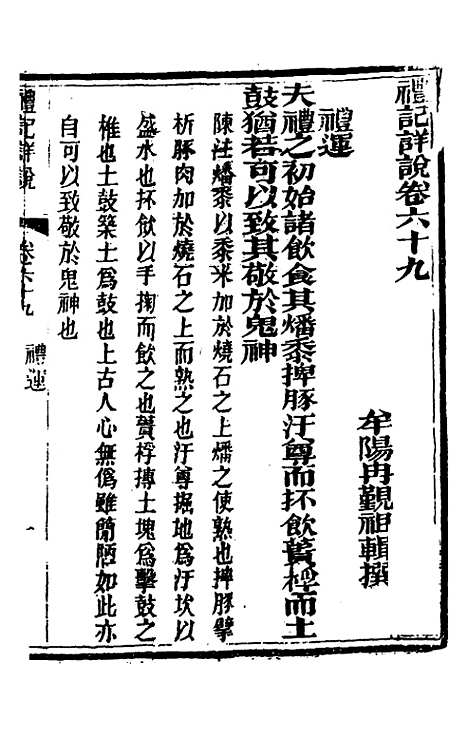 禮記詳說卷六十九
牟陽冉覲祖輯撰
禮運
夫禮之初始諸飲食其燔黍捭豚汙尊而抔飲蕢桴而土
鼓猶若可以致其敬於鬼神
陳注燔黍以黍米加於燒石之上燔之使熟也捭豚擘
析豚肉加於燒石之上而熟之也汙尊掘地為汙坎以
盛水也抔飲以手掬而飲之也蕢桴摶土塊為擊鼓之
椎也土鼓築土為鼓也上古人心無偽雖簡陋如此亦
自可以致敬於鬼神也
禮記詳說
卷六十九
禮運
一